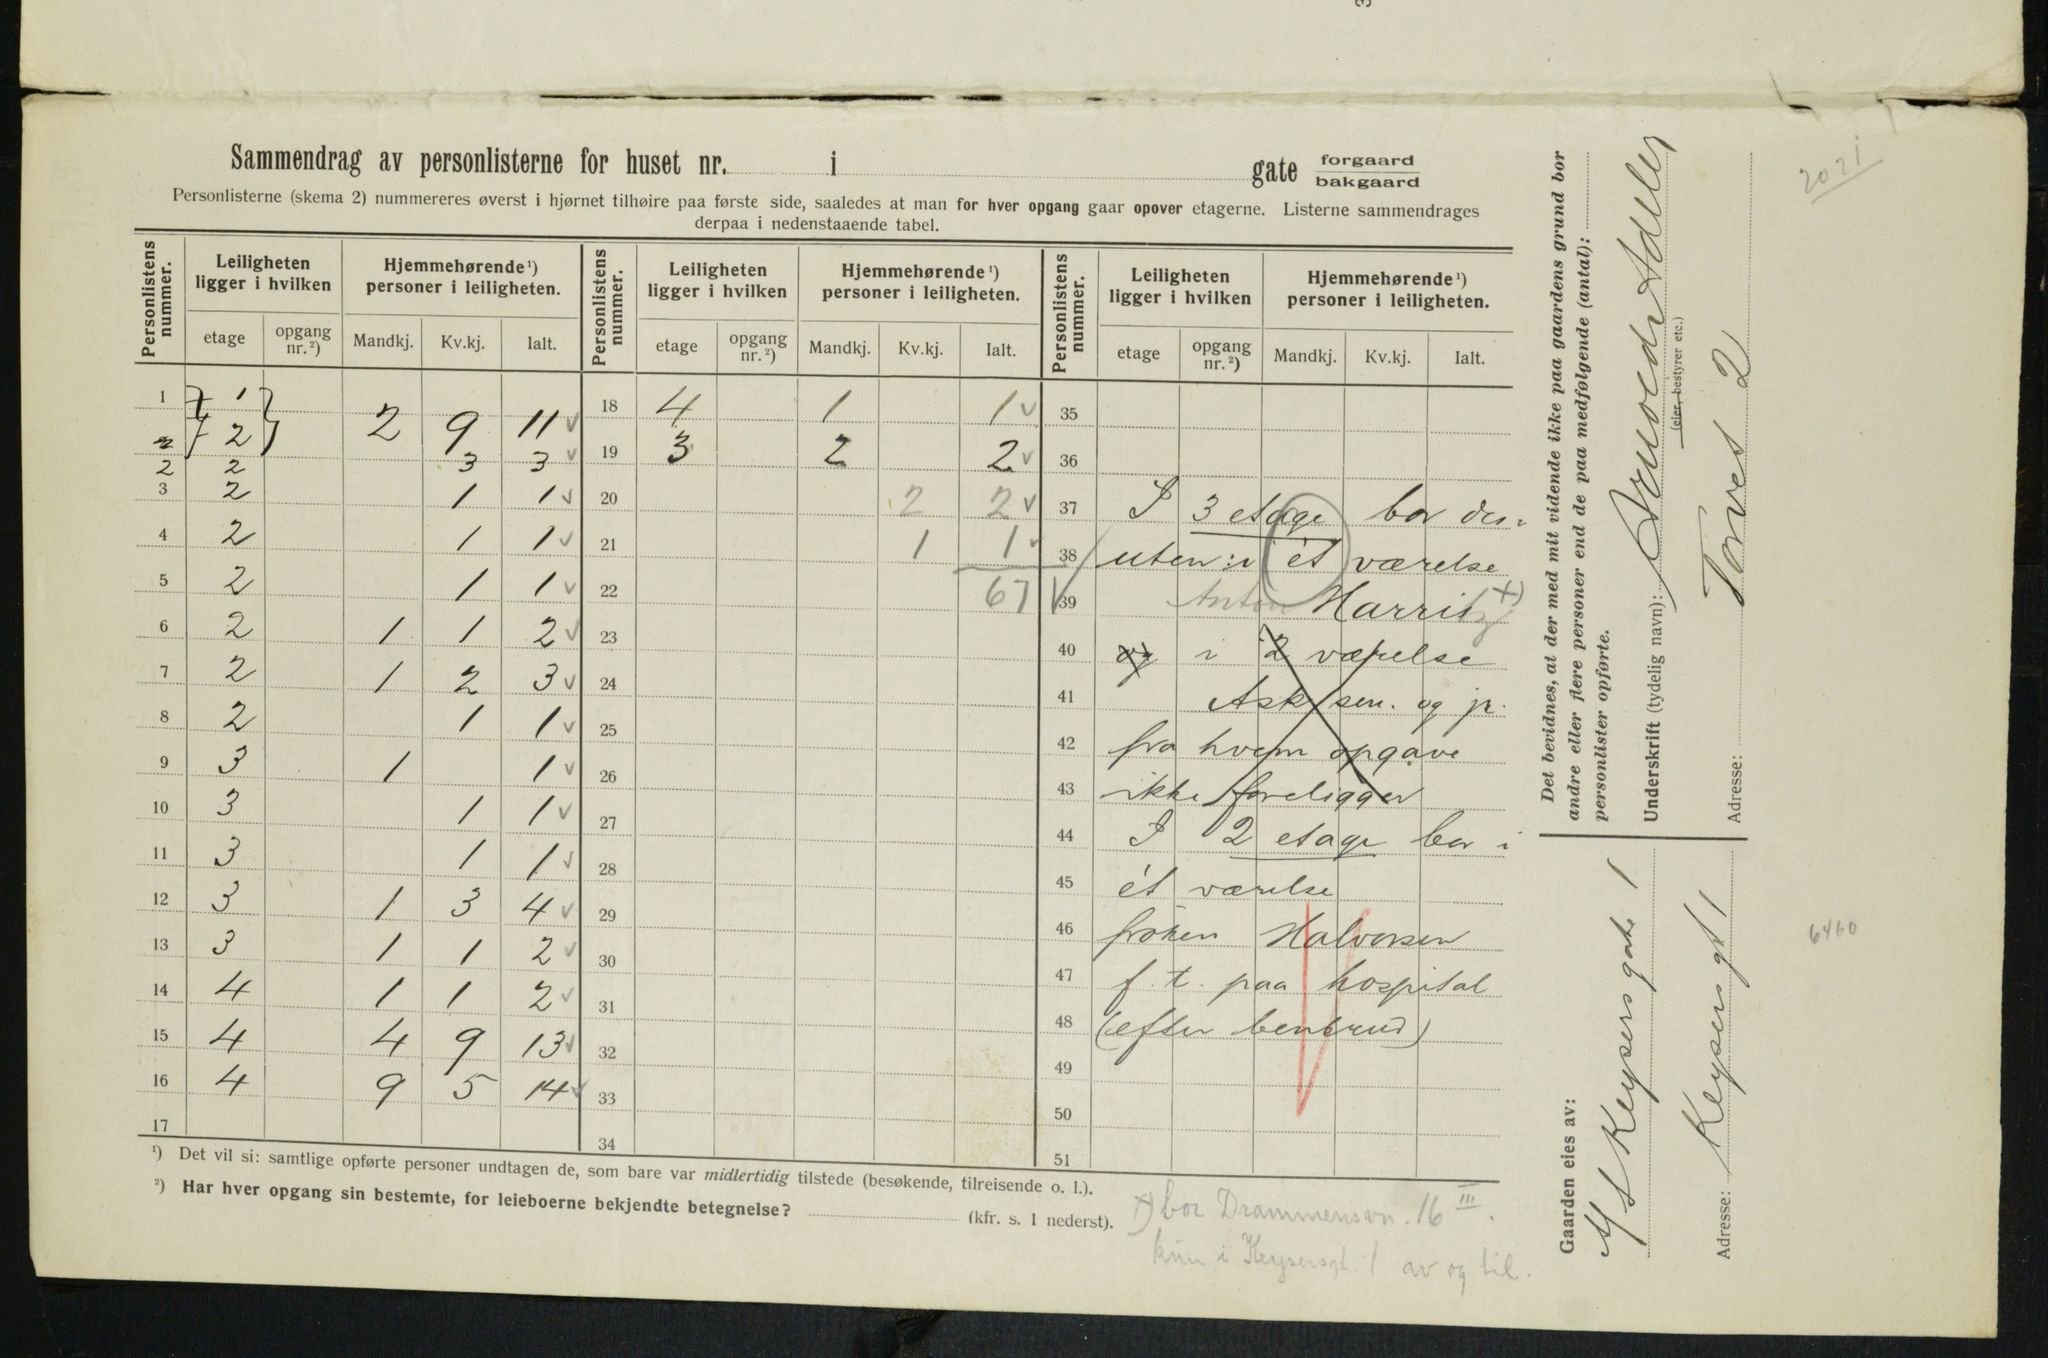 Sammendrag av personlisterne for huset nr. i gate forgaard bakgaard
Personlisterne (skema 2) nummereres øverst i hjørnet tilhøire paa første side, saaledes at man for hver opgang gaar opover etagerne. Listerne sammendrages
derpaa i nedenstaaende tabel.
Personlistens nummer. Leiligheten ligger i hvilken etage opgang nr.²) Hjemmehørende¹) personer i leiligheten. Mandkj. Kv.kj. Ialt.
1 1
2 2 9 11 √
2 2 3 3 √
3 2 1 1 √
4 2 1 1 √
5 2 1 1 √
6 2 1 1 2 √
7 2 1 2 3 √
8 2 1 1 √
9 3 1 1 √
10 3 1 1 √
11 3 1 1 √
12 3 1 3 4 √
13 3 1 1 2 √
14 4 1 1 2 √
15 4 4 9 13 √
16 4 9 5 14 √
17
Personlistens nummer. Leiligheten ligger i hvilken etage opgang nr.²) Hjemmehørende¹) personer i leiligheten. Mandkj. Kv.kj. Ialt.
18 4 1 1 √
19 3 2 2 √
20 2 2 √
21 1 1 √
22 67 √
23
24
25
26
27
28
29
30
31
32
33
34
Personlistens nummer. Leiligheten ligger i hvilken etage opgang nr.²) Hjemmehørende¹) personer i leiligheten. Mandkj. Kv.kj. Ialt.
35
36
37 I 3 etage bor des-
38 uten: i ét værelse
39 Anton Harritz x)
40 og i 2 værelse
41 Ask sen. og jr.
42 fra hvem opgave
43 ikke foreligger
44 I 2 etage bor i
45 ét værelse
46 frøken Halvorsen
47 f. t. paa hospital
48 (efter benbrud)
49
50
51
¹) Det vil si: samtlige opførte personer undtagen de, som bare var midlertidig tilstede (besøkende, tilreisende o. l.).
²) Har hver opgang sin bestemte, for leieboerne bekjendte betegnelse? (kfr. s. 1 nederst).
x) bor Drammensvn. 16 III.
kun i Keysersgt. 1 av og til.
Det bevidnes, at der med mit vidende ikke paa gaardens grund bor
andre eller flere personer end de paa medfølgende (antal):
personlister opførte.
Underskrift (tydelig navn):
(eier, bestyrer etc.)
Adresse: Torvet 2
Gaarden eies av:
A/S Keysersgate 1
Adresse: Keysersgt 1
2021
6460